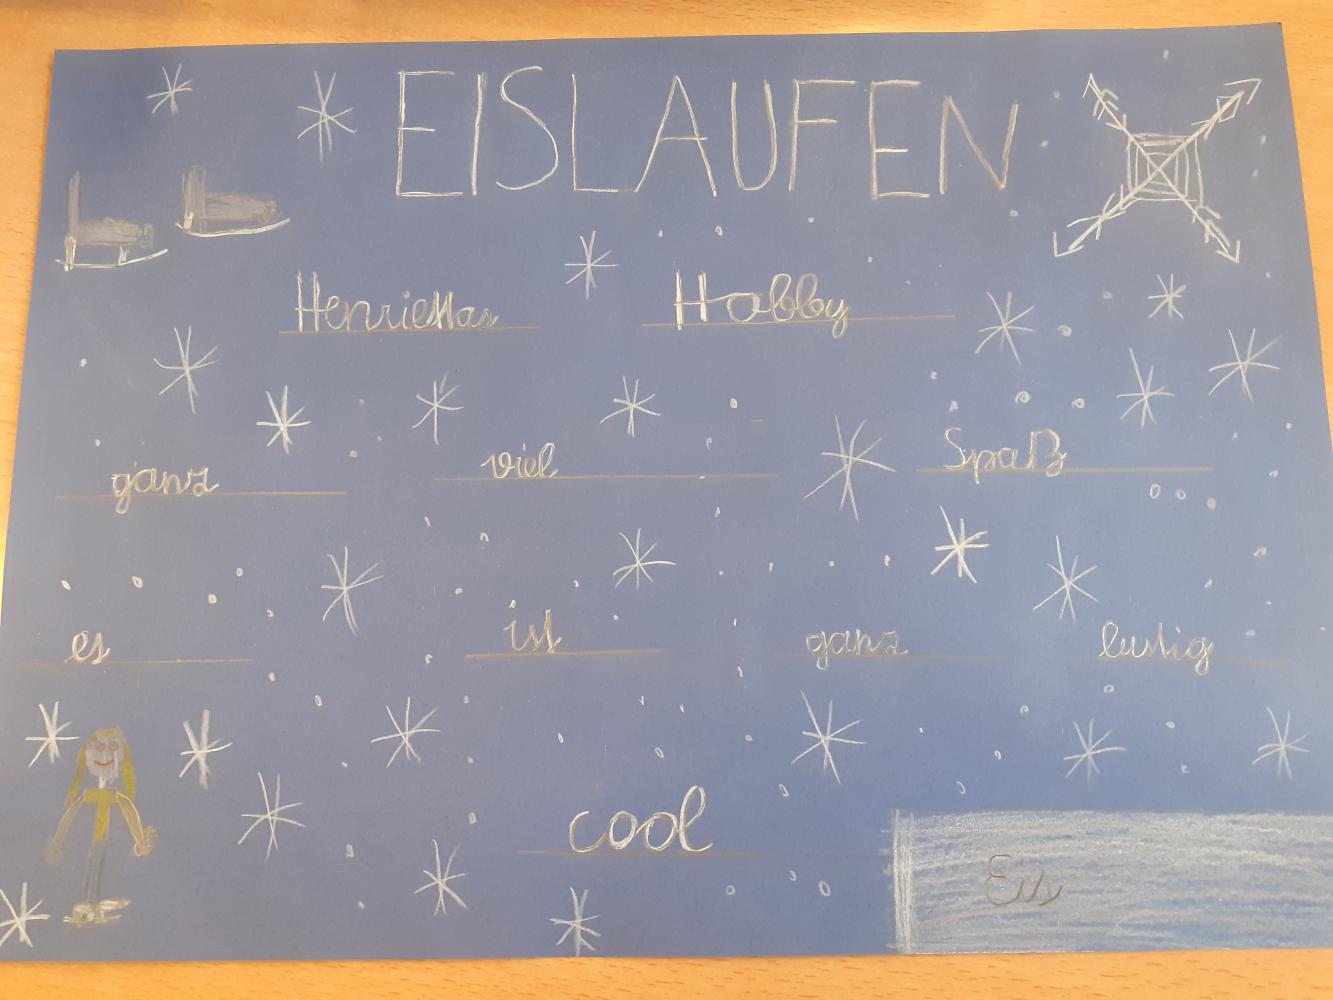 EISLAUFEN
Henriettas Hobby
ganz viel Spaß
es ist ganz lustig
cool
Eis